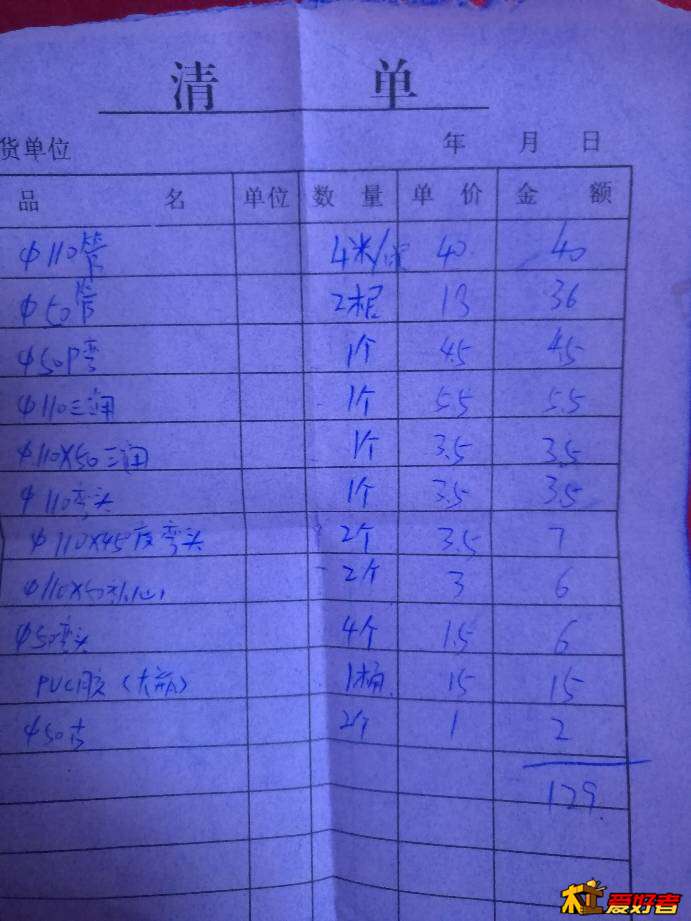 清 单
货单位 年 月 日
品 名 单位 数 量 单 价 金 额
φ110管 4米/根 40 40
φ50管 2根 18 36
φ50P弯 1个 4.5 4.5
φ110三通 1个 5.5 5.5
φ110×50三通 1个 3.5 3.5
φ110弯头 1个 3.5 3.5
φ110×45度弯头 2个 3.5 7
φ110×50 2个 3 6
φ50弯头 4个 1.5 6
PVC胶(大瓶) 1桶 15 15
φ50卡 2个 1 2
129
爱好者